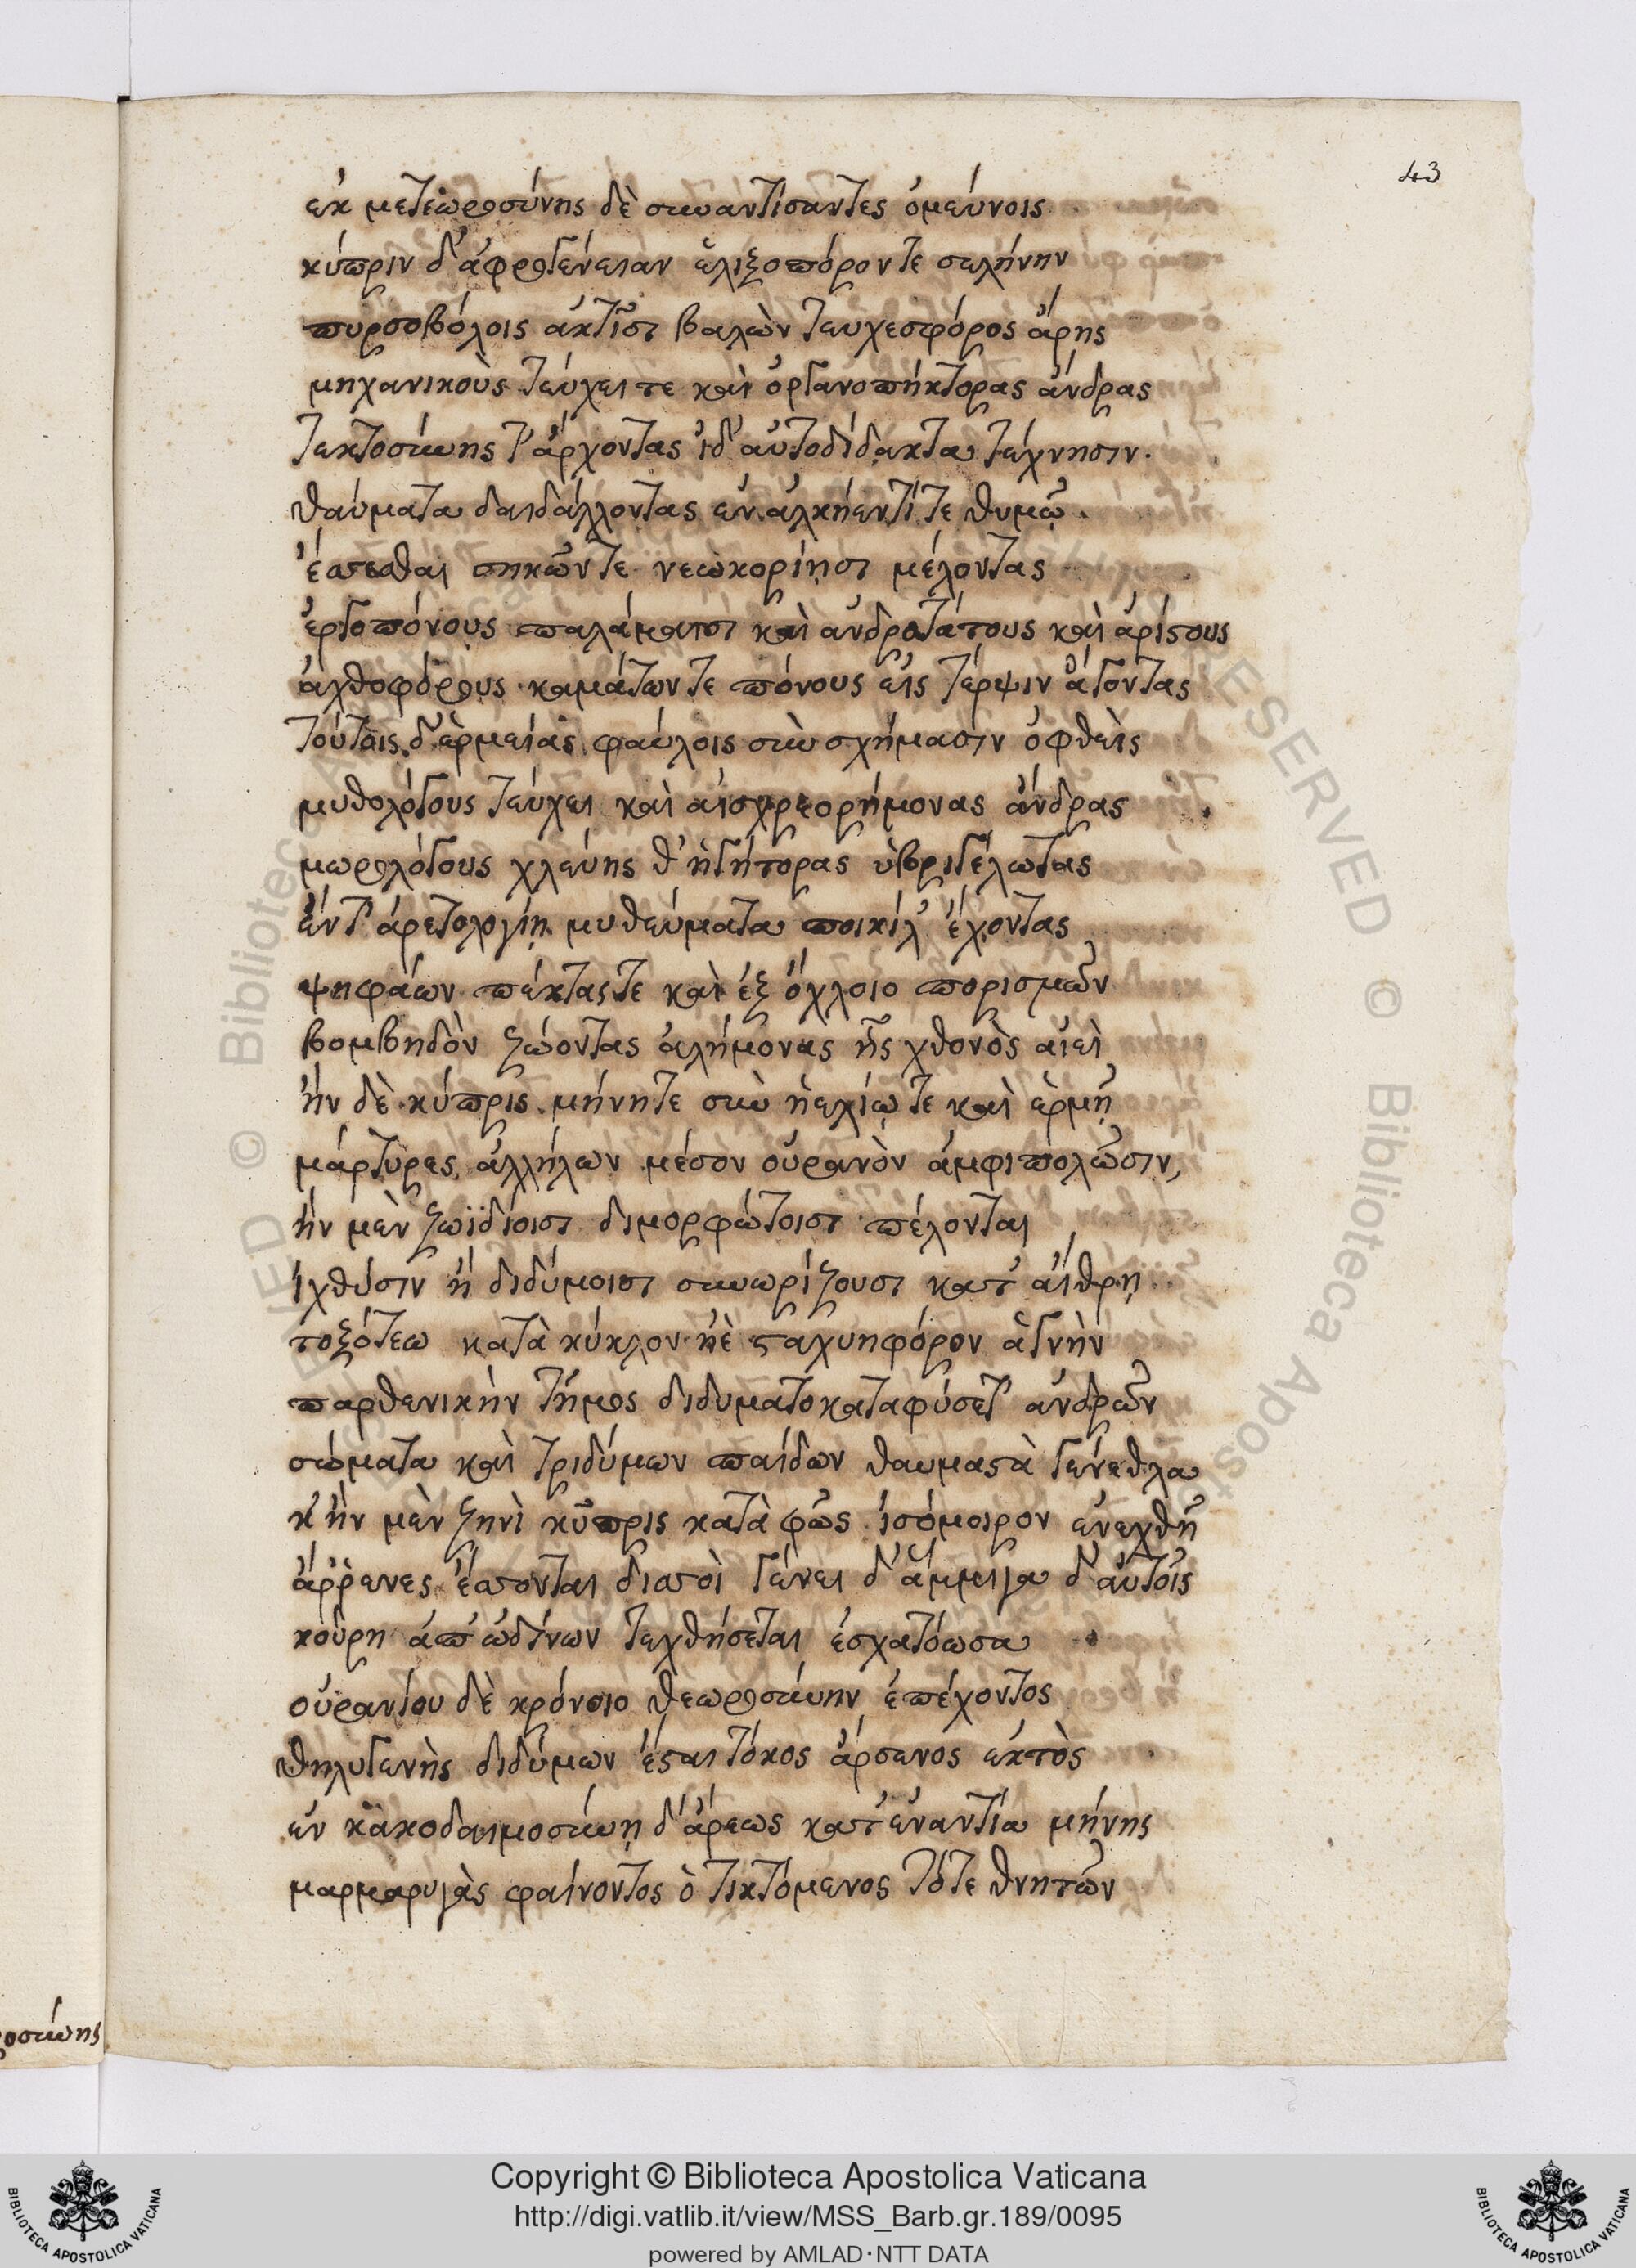 43
ἐκ μετεωροσύνης δὲ συναντίσαντες ὁμεύνοις
κύπριν δ' ἀφρογένειαν ἑλιξοπόρον τε σελήνην
πυρσοβόλοις ἀκτῖσι βαλὼν τευχεσφόρος ἄρης
μηχανικοὺς τεύχει τε καὶ ὀργανοπήκτορας ἄνδρας
τεκτοσύνης τ' ἄρχοντας ἰδ' αὐτοδίδακτα τέχνησιν.
θαύματα δαιδάλλοντας ἐν ἀλκήεντί τε θυμῷ.
ἕσπεσθαι σηκῶν τε νεωκορίῃσι μέλοντας
ἐργοπόνους παλάμαισι καὶ ἀνδροτάτους καὶ ἀρίστους
ἀχθοφόρους καμάτων τε πόνους εἰς τέρψιν ἄγοντας
τούτοις δ' ἑρμείας φαύλοις σὺν σχήμασιν ὀφθεὶς
μυθολόγους τεύχει καὶ αἰσχρεορήμονας ἄνδρας
μωρολόγους χλεύης θ' ἡγήτορας ὑβριγέλωτας
ἔν τ' ἀρεταλογίῃ μυθεύματα ποικίλ' ἔχοντας
ψηφάων πέκτας τε καὶ ἐξ ὄχλοιο πορισμῶν
βομβηδὸν ζώοντας ἀλήμονας ἧς χθονὸς αἰεὶ
ἢν δὲ κύπρις μήνη τε σὺν ἠελίῳ τε καὶ ἑρμῇ
μάρτυρες ἀλλήλων μέσον οὐρανὸν ἀμφιπολῶσιν,
ἢν μὲν ζωϊδίοισι διμορφώτοισι πέλονται
ἰχθύσιν ἢ διδύμοισι συνωρίζουσι κατ' αἴθρῃ
τοξότεω κατὰ κύκλον ἠὲ σταχυηφόρον ἁγνὴν
παρθενικὴν τῆμος διδυματοκαταφύσετ' ἀνδρῶν
σώματα καὶ τριδύμων παίδων θαυμαστὰ γένεθλα
κ' ἢν μὲν ζηνὶ κύπρις κατὰ φῶς ἰσόμοιρον ἐνεχθῇ
ἄρρενες ἕσπονται δισσοὶ γένει δ' ἄμμειγα δ' αὐτοῖς
κούρη ἀπ' ὠδίνων τεχθήσεται ἐσχατόωσα
οὐρανίου δὲ κρόνοιο θεωροσύνην ἐπέχοντος
θηλυγενὴς διδύμων ἔσται τόκος ἄρσενος ἐκτὸς
ἐν κακοδαιμοσύνῃ δ' ἄρεως κατ' ἐναντία μήνης
μαρμαρυγὰς φαίνοντος ὁ τικτόμενος τότε θνητῶν
Copyright © Biblioteca Apostolica Vaticana
http://digi.vatlib.it/view/MSS_Barb.gr.189/0095
powered by AMLAD·NTT DATA